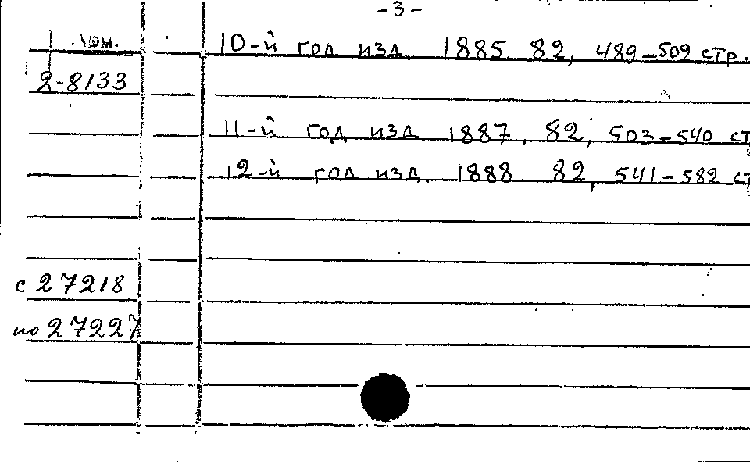 -3-
10-й год изд 1885 82, 489-509 стр.
2-8133
11-й год изд 1887, 82, 503-540 ст
12-й год изд. 1888 82, 541-582 ст
с 27218
по 27227